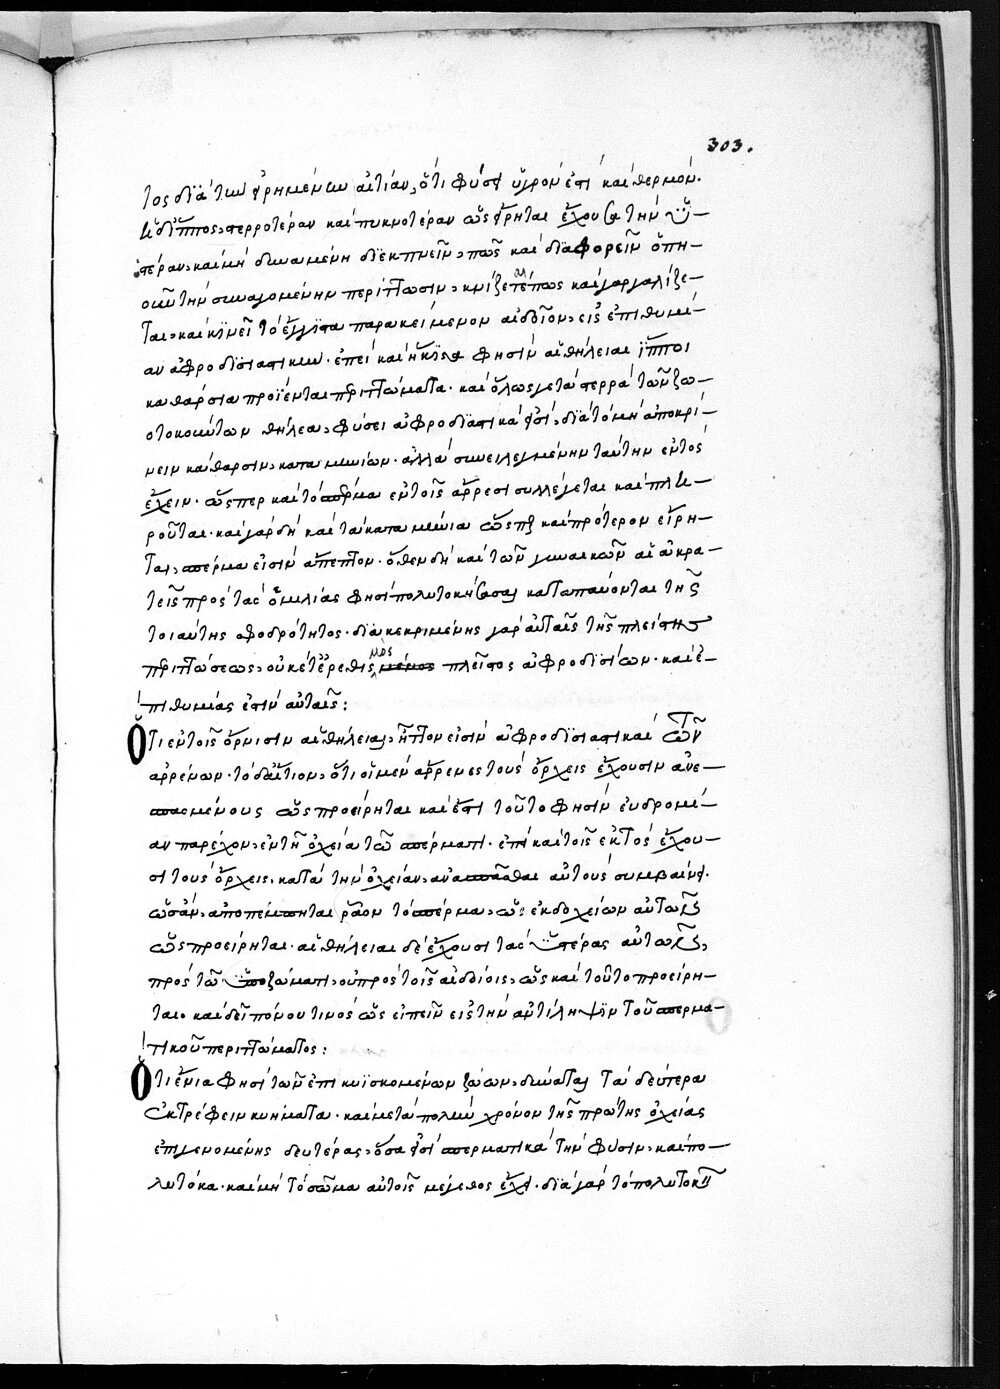 303.
τος διὰ τῶν εἰρημένων αἰτίαν, ὅτι φύσει ὑγρόν ἐστι καὶ θερμόν.
ἡ δ' ἵππος, στερροτέραν καὶ πυκνοτέραν ὡς εἴρηται ἔχουσα τὴν ὑ-
στέραν, καὶ μὴ δυναμένη διεκπνεῖν, πῶς καὶ διαφορεῖν ὅπη-
οῦν τὴν συναγομένην περίττωσιν, κνίζεται πως καὶ γαργαλίζε-
ται, καὶ κινεῖ τὸ ἔγγιστα παρακείμενον αἰδοῖον, εἰς ἐπιθυμί-
αν ἀφροδισιαστικῶν. ἐπεὶ καὶ φησὶν αἱ θήλειαι ἵπποι
καθάρσια προΐενται περιττώματα. καὶ ὅλως μετὰ στερρὰ τῶν ζω-
οτοκούντων θήλεα, φύσει ἀφροδισιαστικά εἰσι, διὰ τὸ μὴ ἀποκρί-
νειν κάθαρσιν, καταμηνίων. ἀλλὰ συνειλεγμένην ταύτην ἐντὸς
ἔχειν. ὥσπερ καὶ τὸ σπέρμα ἐν τοῖς ἄρρεσι συλλέγεται καὶ πλη-
ροῦται. καὶ γὰρ δὴ καὶ τὰ καταμήνια ὥσπερ καὶ πρότερον εἴρη-
ται, σπέρμα εἰσὶν ἄπεπτον. ὅθεν δὴ καὶ τῶν γυναικῶν αἱ ἀκρα-
τεῖς πρὸς τὰς ὁμιλίας φησὶ πολυτοκήσασαι καταπαύονται τῆς
τοιαύτης σφοδρότητος. διακεκριμένης γὰρ αὐταῖς τῆς πλείστης
περιττώσεως, οὐκέτ' ἐρεθισμὸς πλεῖστος ἀφροδισίων. καὶ ἐ-
πιθυμίας ἐστὶν αὐταῖς:
Ὅτι ἐν τοῖς ὄρνισιν αἱ θήλειαι, ἧττον εἰσὶν ἀφροδισιαστικαὶ τῶν
ἀρρένων. τὸ δ' αἴτιον, ὅτι οἱ μὲν ἄρρενες τοὺς ὄρχεις ἔχουσιν ἀνε-
σπασμένους ὡς προείρηται καὶ ἔστι τοῦτο φησὶν εὐδρομί-
αν παρέχον, ἐν τῇ ὀχείᾳ τῶ σπέρματι. ἐπεὶ καὶ τοῖς ἐκτὸς ἔχου-
σι τοὺς ὄρχεις. κατὰ τὴν ὀχείαν, ἀνασπᾶσθαι αὐτοὺς συμβαίνει.
ὡς ἂν, ἀποπέμπηται ρᾶον τὸ σπέρμα, ὡς ἐκδοχείων αὐτοῖς
ὡς προείρηται. αἱ θήλειαι δὲ ἔχουσι τὰς ὑστέρας αὐτῶν,
πρὸς τῶ ὑποζώματι, οὐ πρὸς τοῖς αἰδοίοις, ὡς καὶ τοῦτο προείρη-
ται. καὶ δεῖ πόνου τινὸς ὡς εἰπεῖν εἰς τὴν ἀντίληψιν τοῦ σπερμα-
τικοῦ περιττώματος:
Ὅτι ἔνια φησὶ τῶν ἐπικυϊσκομένων ζώων, δύναται τὰ δεύτερα
ἐκτρέφειν κυήματα. καὶ μετὰ πολὺν χρόνον τῆς πρώτης ὀχείας
ἐπιγενομένης δευτέρας, ὅσα εἰσὶ σπερματικὰ τὴν φύσιν, καὶ πο-
λυτόκα. καὶ μὴ τὸ σῶμα αὐτοῖς μέγεθος ἔχει. διὰ γὰρ τὸ πολυτοκεῖν